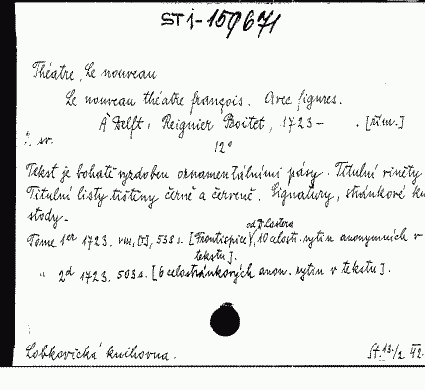 ST j-159671
Théatre, Le nouveau
Le nouveau théatre françois. Avec figures.
À Delft, Reignier Boitet, 1723 – . [řím.]
2 sv. 12°
Tekst je bohatě vyzdoben ornamentálními pásy. Titulní viněty
Titulní listy tištěny černě a červeně. Signatury, stránkové ku-
stody.
Tome 1er 1723. VIII, [I], 538 s. [Frontispice], 10 celostr. rytin anonymních v
tekstu].
" 2d 1723. 503 s. [6 celostránkových anon. rytin v tekstu].
Lobkovická knihovna. St. 13./2 42.